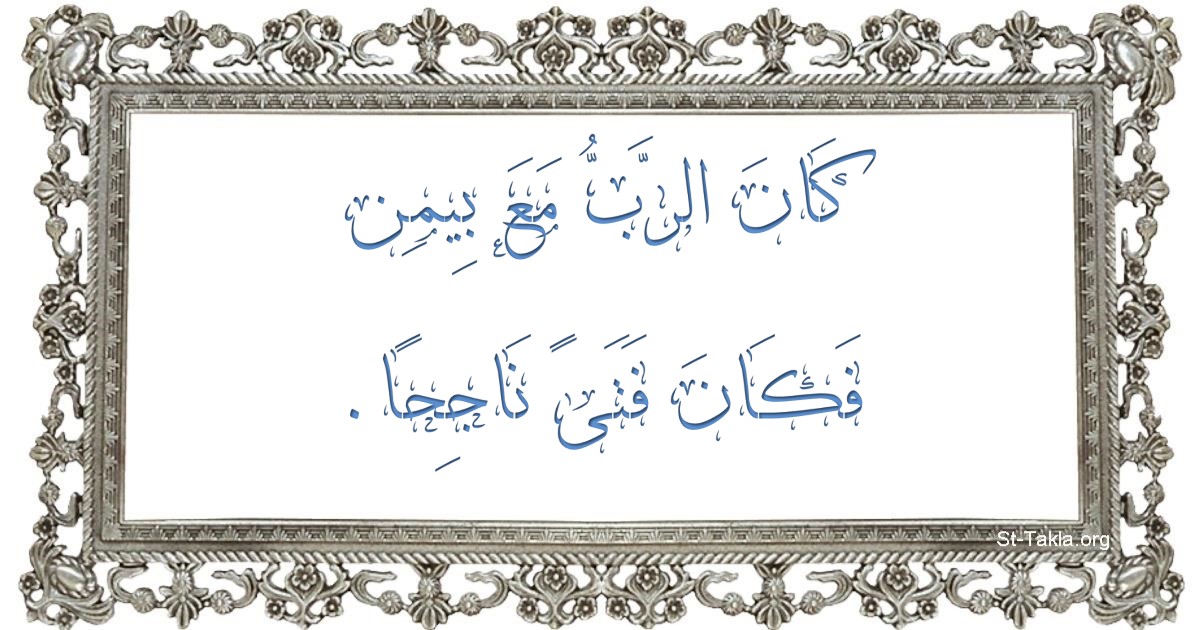 كَانَ الرَّبُّ مَعَ بِيمِن
فَكَانَ فَتَىً نَاجِحًا .
St-Takla.org